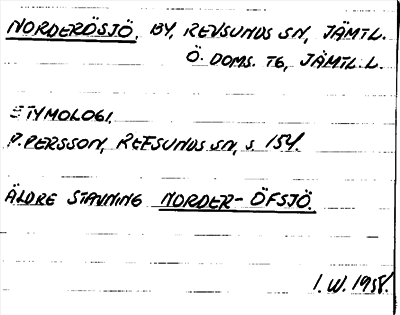 NORDERÖSJÖ, BY, REVSUNDS SN, JÄMTL.
Ö. DOMS. TG, JÄMTL. L.
ETYMOLOGI.
P. PERSSON, REFSUNDS SN, S. 154.
ÄLDRE STAVNING NORDER-ÖFSJÖ.
I. W. 1958.